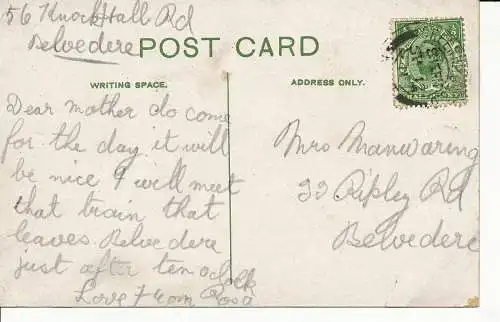 56 Knockhall Rd
Belvedere
POST CARD
WRITING SPACE.
ADDRESS ONLY.
Dear mother do come
for the day it will
be nice I will meet
that train that
leaves Belvedere
just after ten oclock
Love From Rosa
Mrs Manwaring
33 Ripley Rd
Belvedere